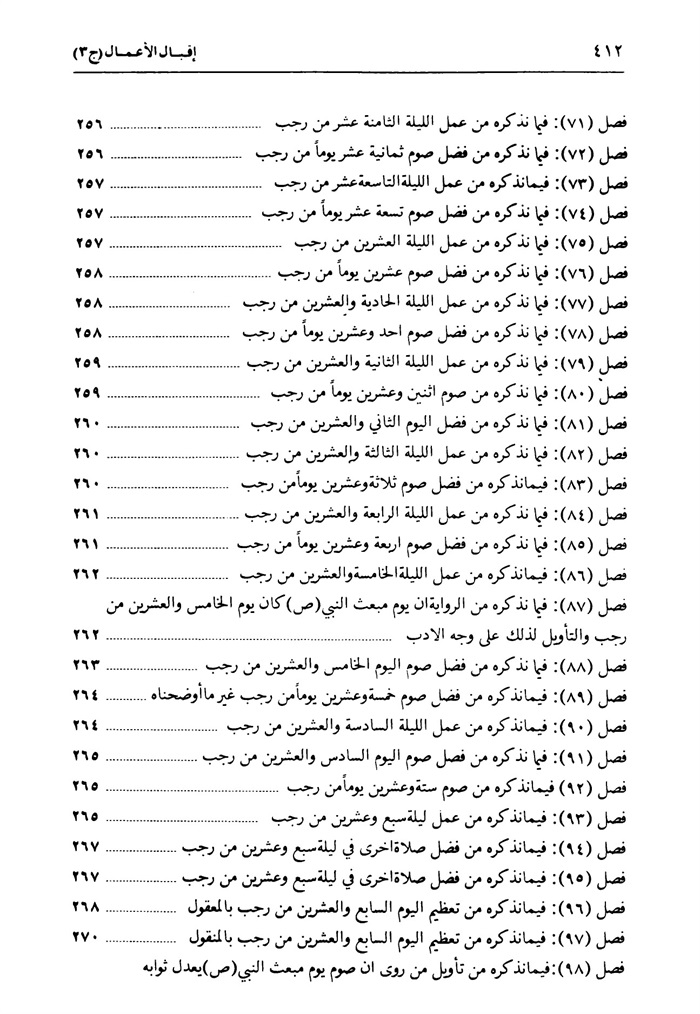 ٤١٢ إقبال الأعمال (ج٣)
فصل (٧١): فيما نذكره من عمل الليلة الثامنة عشر من رجب ٢٥٦
فصل (٧٢): فيما نذكره من فضل صوم ثمانية عشر يوماً من رجب ٢٥٦
فصل (٧٣): فيمانذكره من عمل الليلةالتاسعةعشر من رجب ٢٥٧
فصل (٧٤): فيما نذكره من فضل صوم تسعة عشر يوماً من رجب ٢٥٧
فصل (٧٥): فيما نذكره من عمل الليلة العشرين من رجب ٢٥٧
فصل (٧٦): فيما نذكره من فضل صوم عشرين يوماً من رجب ٢٥٨
فصل (٧٧): فيما نذكره من عمل الليلة الحادية والعشرين من رجب ٢٥٨
فصل (٧٨): فيما نذكره من فضل صوم احد وعشرين يوماً من رجب ٢٥٨
فصل (٧٩): فيما نذكره من عمل الليلة الثانية والعشرين من رجب ٢٥٩
فصل (٨٠): فيما نذكره من صوم اثنين وعشرين يوماً من رجب ٢٥٩
فصل (٨١): فيما نذكره من فضل اليوم الثاني والعشرين من رجب ٢٦٠
فصل (٨٢): فيما نذكره من عمل الليلة الثالثة والعشرين من رجب ٢٦٠
فصل (٨٣): فيمانذكره من فضل صوم ثلاثةوعشرين يوماًمن رجب ٢٦٠
فصل (٨٤): فيما نذكره من عمل الليلة الرابعة والعشرين من رجب ٢٦١
فصل (٨٥): فيما نذكره من فضل صوم اربعة وعشرين يوماً من رجب ٢٦١
فصل (٨٦): فيمانذكره من عمل الليلةالخامسةوالعشرين من رجب ٢٦٢
فصل (٨٧): فيما نذكره من الروايةان يوم مبعث النبي(ص)كان يوم الخامس والعشرين من
رجب والتأويل لذلك على وجه الادب ٢٦٢
فصل (٨٨): فيما نذكره من فضل صوم اليوم الخامس والعشرين من رجب ٢٦٣
فصل (٨٩): فيمانذكره من فضل صوم خمسةوعشرين يوماًمن رجب غير ماأوضحناه ٢٦٤
فصل (٩٠): فيمانذكره من عمل الليلة السادسة والعشرين من رجب ٢٦٤
فصل (٩١): فيما نذكره من فصل صوم اليوم السادس والعشرين من رجب ٢٦٥
فصل (٩٢) فيمانذكره من صوم ستةوعشرين يوماًمن رجب ٢٦٥
فصل (٩٣): فيمانذكره من عمل ليلةسبع وعشرين من رجب ٢٦٥
فصل (٩٤): فيمانذكره من فضل صلاةاخرى في ليلةسبع وعشرين من رجب ٢٦٧
فصل (٩٥): فيمانذكره من فضل صلاةاخرى في ليلةسبع وعشرين من رجب ٢٦٧
فصل (٩٦): فيمانذكره من تعظيم اليوم السابع والعشرين من رجب بالمعقول ٢٦٨
فصل (٩٧): فيمانذكره من تعظيم اليوم السابع والعشرين من رجب بالمنقول ٢٧٠
فصل (٩٨):فيمانذكره من تأويل من روى ان صوم يوم مبعث النبي(ص)يعدل ثوابه